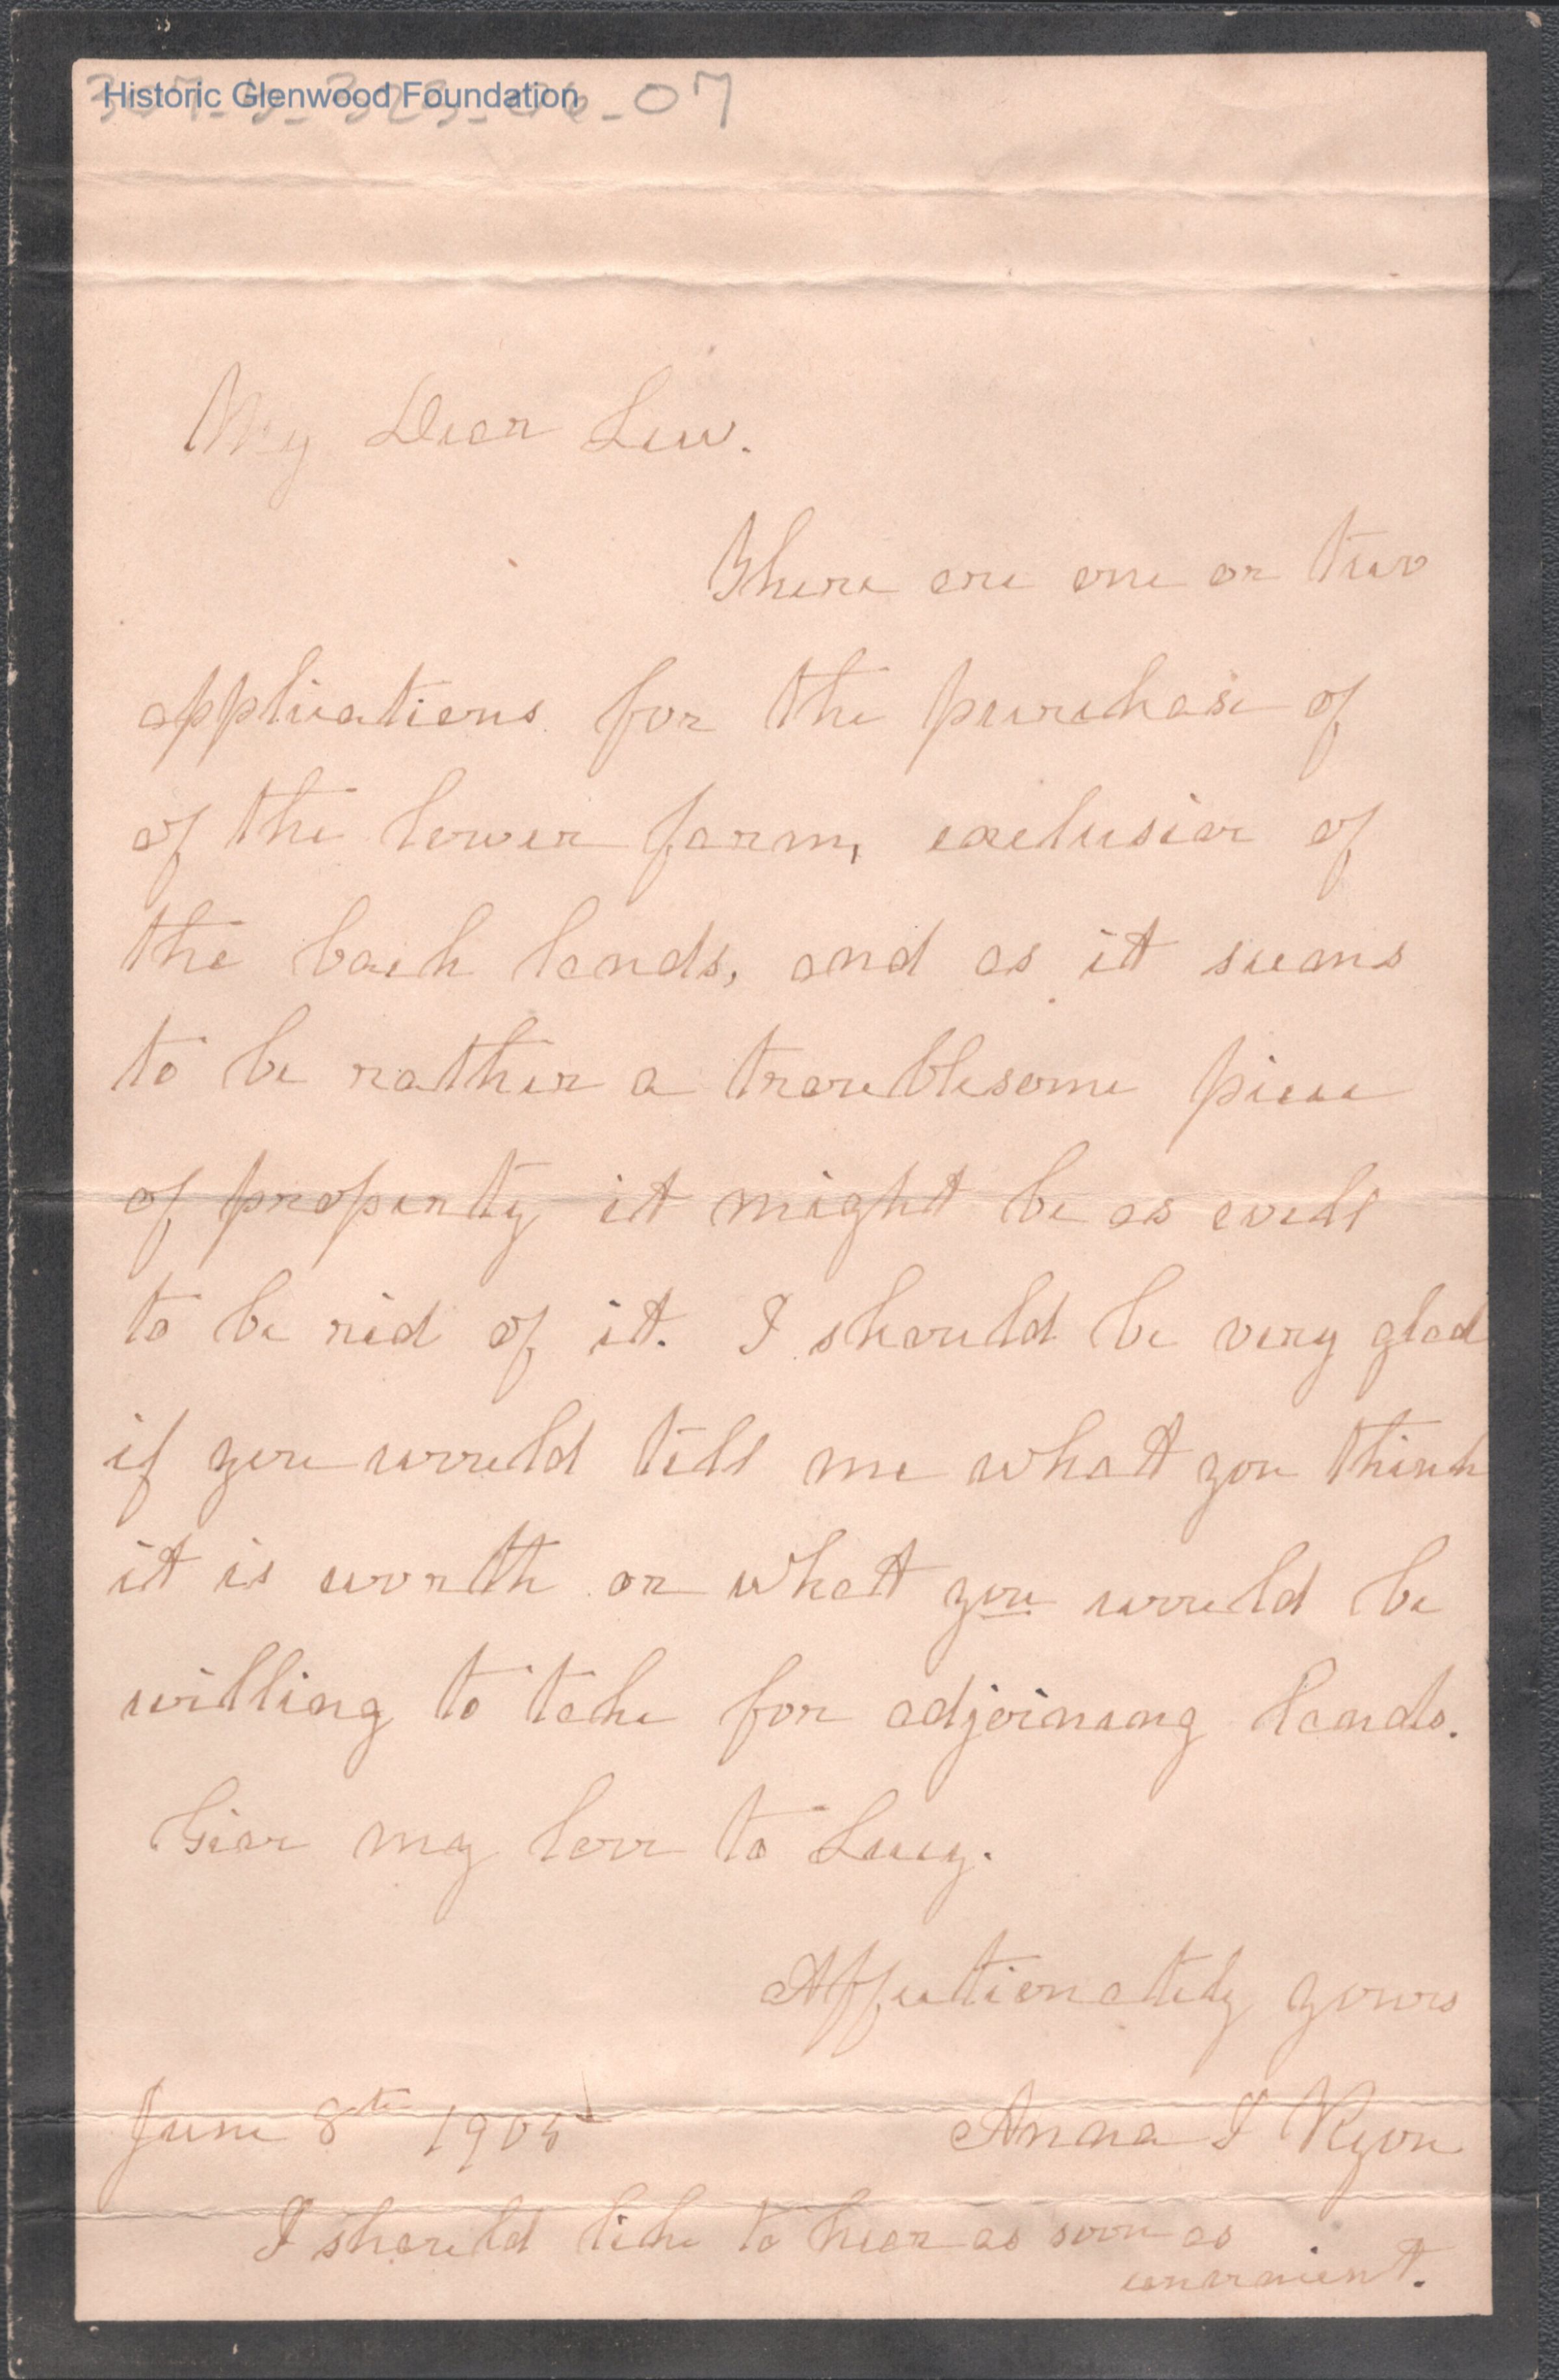 Historic Glenwood Foundation
07
My Dear Lew.
There are one or two
applications for the purchase of
of the lower farm, exclusive of
the back lands, and as it seems
to be rather a troublesome piece
of property it might be as well
to be rid of it. I should be very glad
if you would tell me what you think
it is worth or what you would be
willing to take for adjoining lands.
Give my love to Lucy.
Affectionately yours
June 8th 1905 Anna I Ryon
I should like to hear as soon as
convenient.